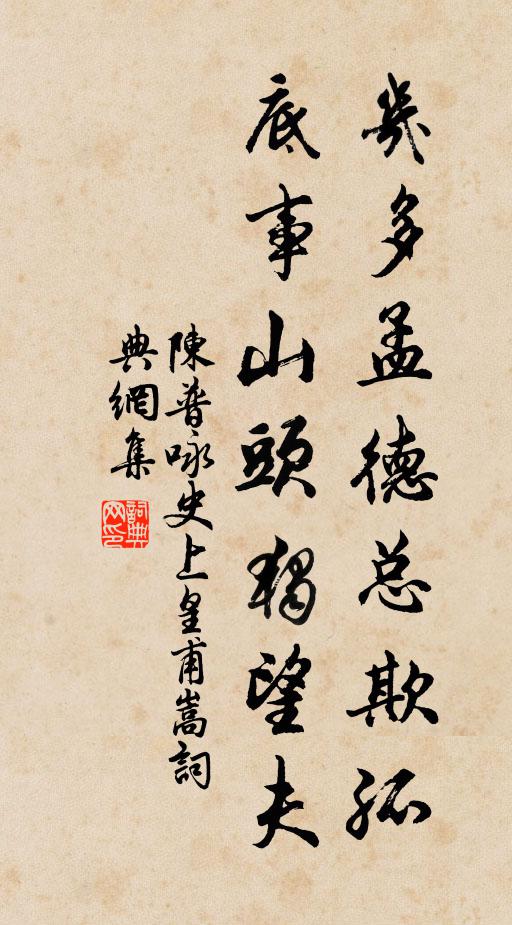 幾多孟德总欺孤
底事山頭獨望夫
陳普咏史上皇甫嵩詞
典網集
詞典
网印